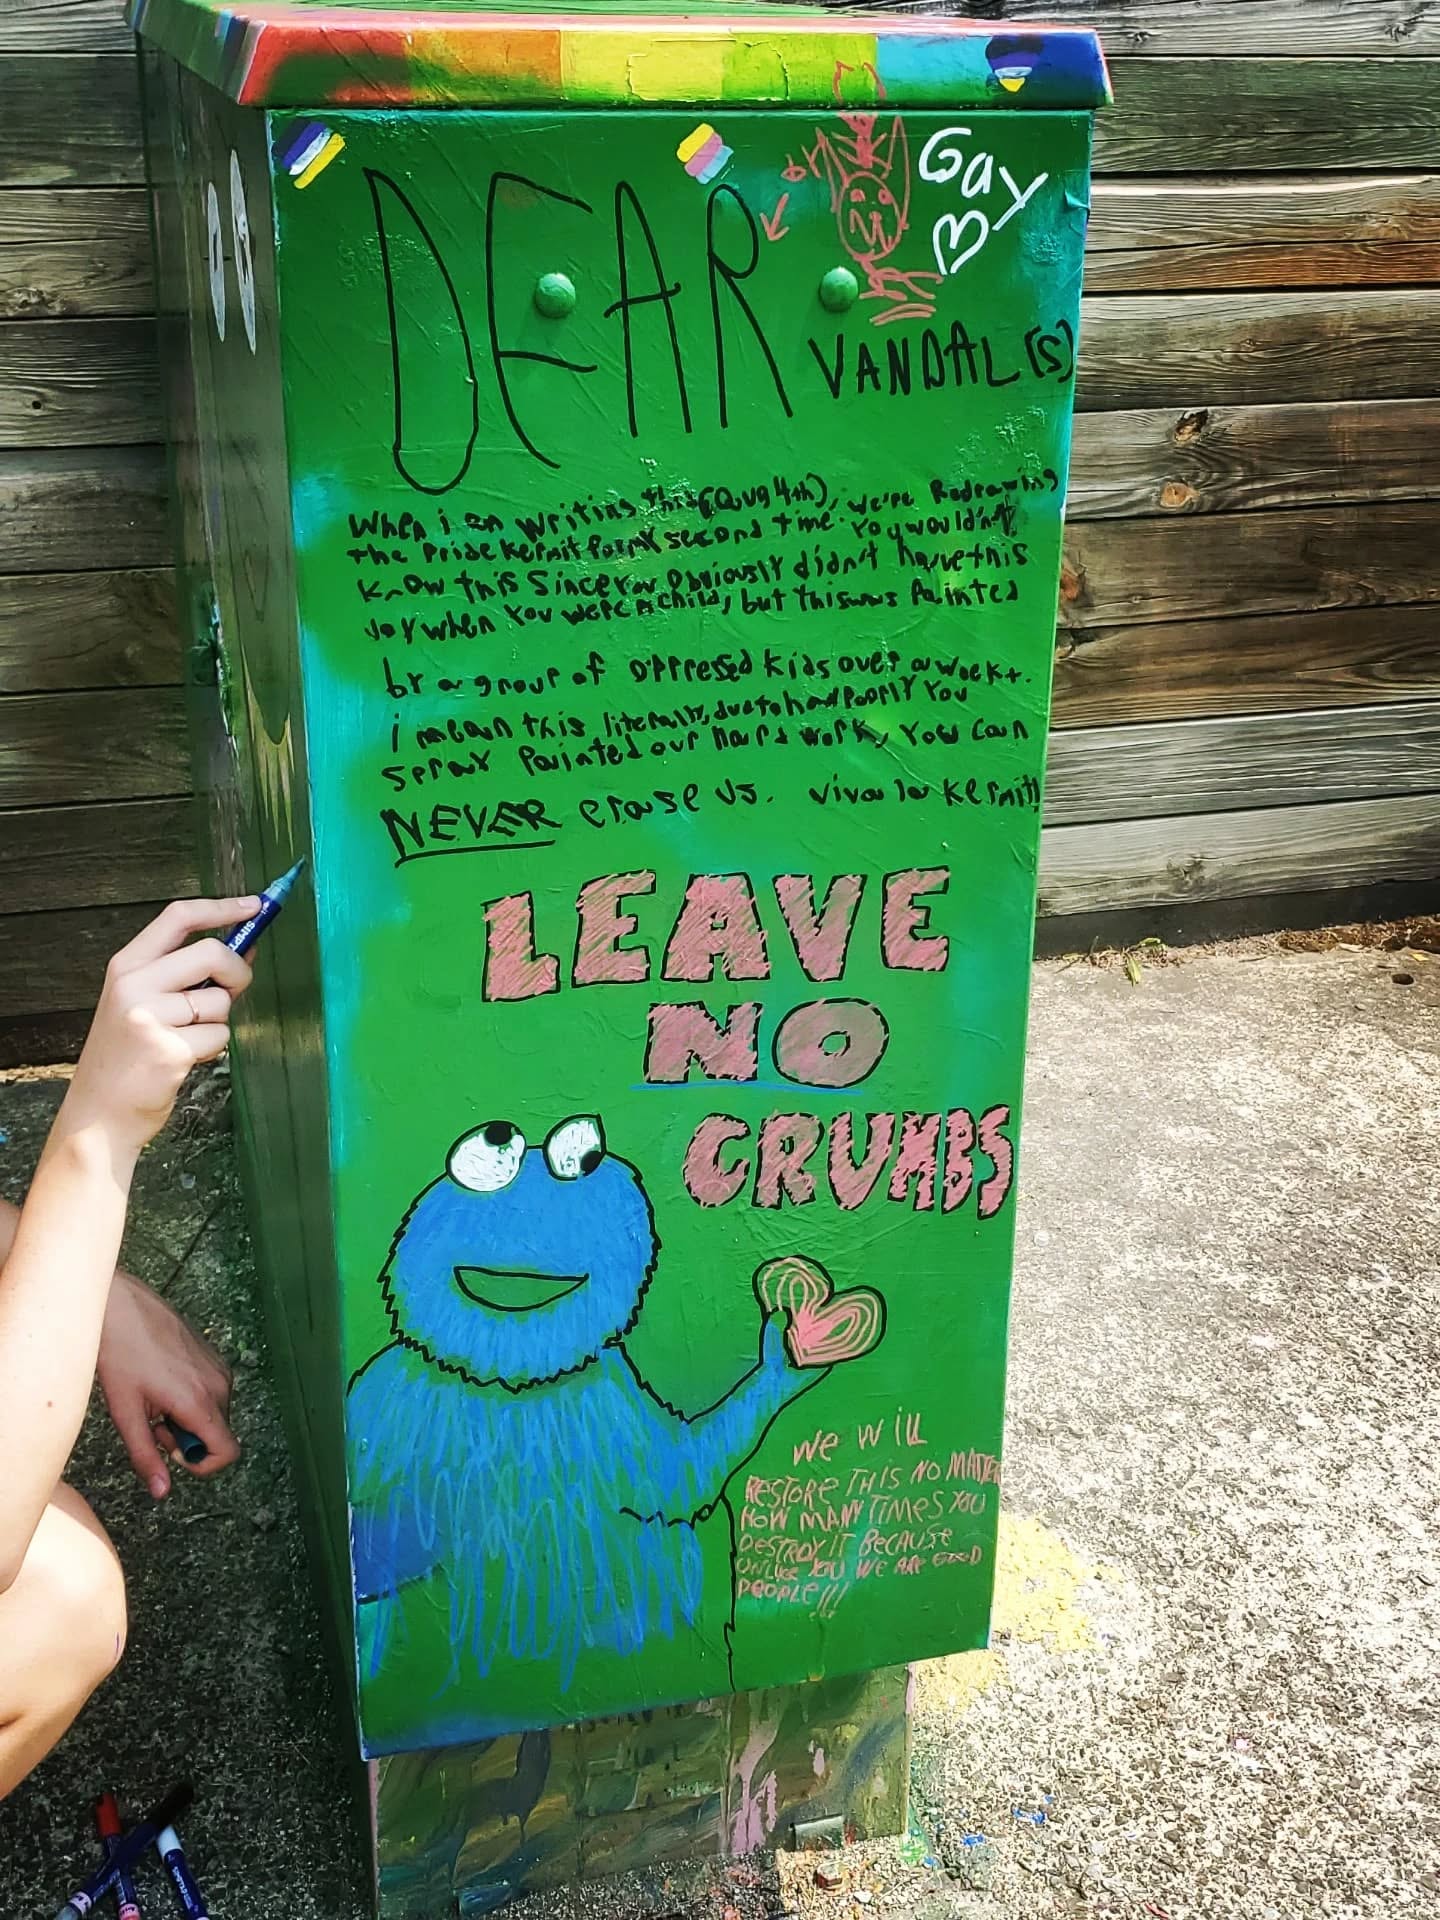 Gay
DEAR
VANDAL(S)
When i am writing this (aug 4th), we're Redrawing
the pride kermit for my second time. You wouldn't
know this Since you obviously didn't have this
Joy when You were a child, but this was Painted
by a group of oppressed kids over a week+.
i mean this literally, due to how poorly You
Spray Painted our hard work, You can
NEVER erase us. viva la kermit!
LEAVE
NO
CRUMBS
We will
RESTORE THIS NO MATTER
HOW MANY TIMES YOU
DESTROY IT BECAUSE
UNLIKE YOU WE ARE GOOD
PEOPLE!!!